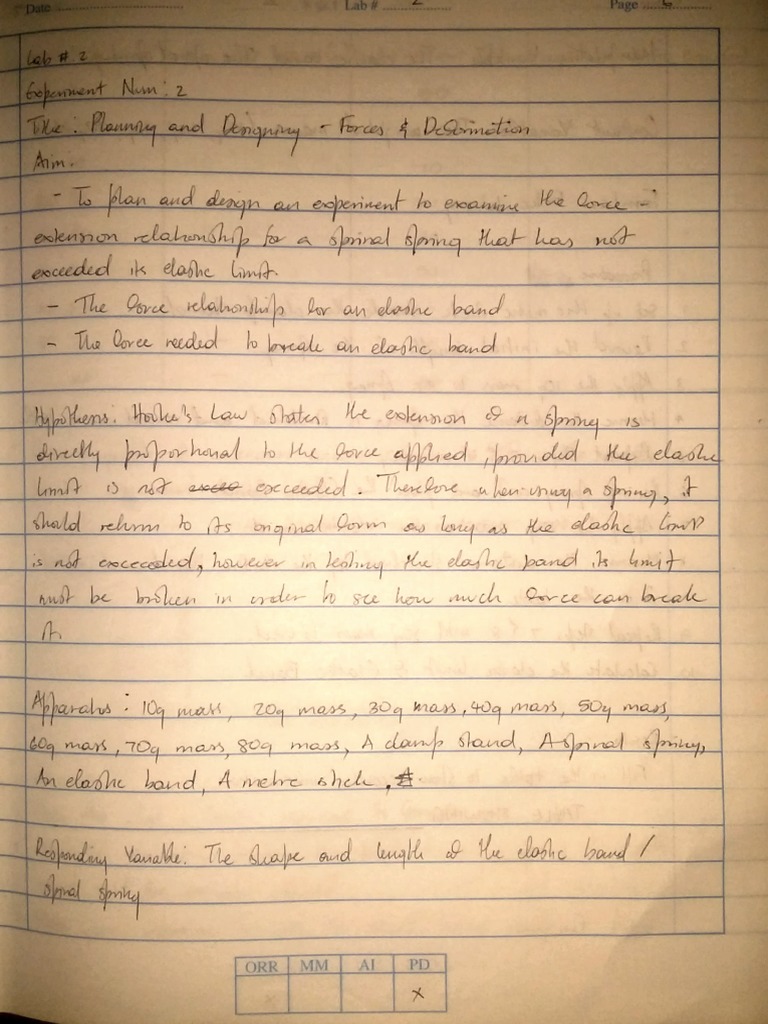 Date Lab # 2 Page
Lab # 2
Experiment Num: 2
Title: Planning and Designing - Forces & Deformation
Aim:
- To plan and design an experiment to examine the force -
extension relationship for a spiral spring that has not
exceeded its elastic limit.
- The force relationship for an elastic band
- The force needed to break an elastic band
Hypothesis: Hooke's Law states the extension of a spring is
directly proportional to the force applied, provided the elastic
limit is not exceeded. Therefore when using a spring, it
should return to its original form as long as the elastic limit
is not excceeded, however in testing the elastic band its limit
must be broken in order to see how much force can break
it.
Apparatus: 10g mass, 20g mass, 30g mass, 40g mass, 50g mass,
60g mass, 70g mass, 80g mass, A clamp stand, A spiral spring,
An elastic band, A metre stick,
Responding Variable: The shape and length of the elastic band /
spiral spring
ORR MM AI PD
x